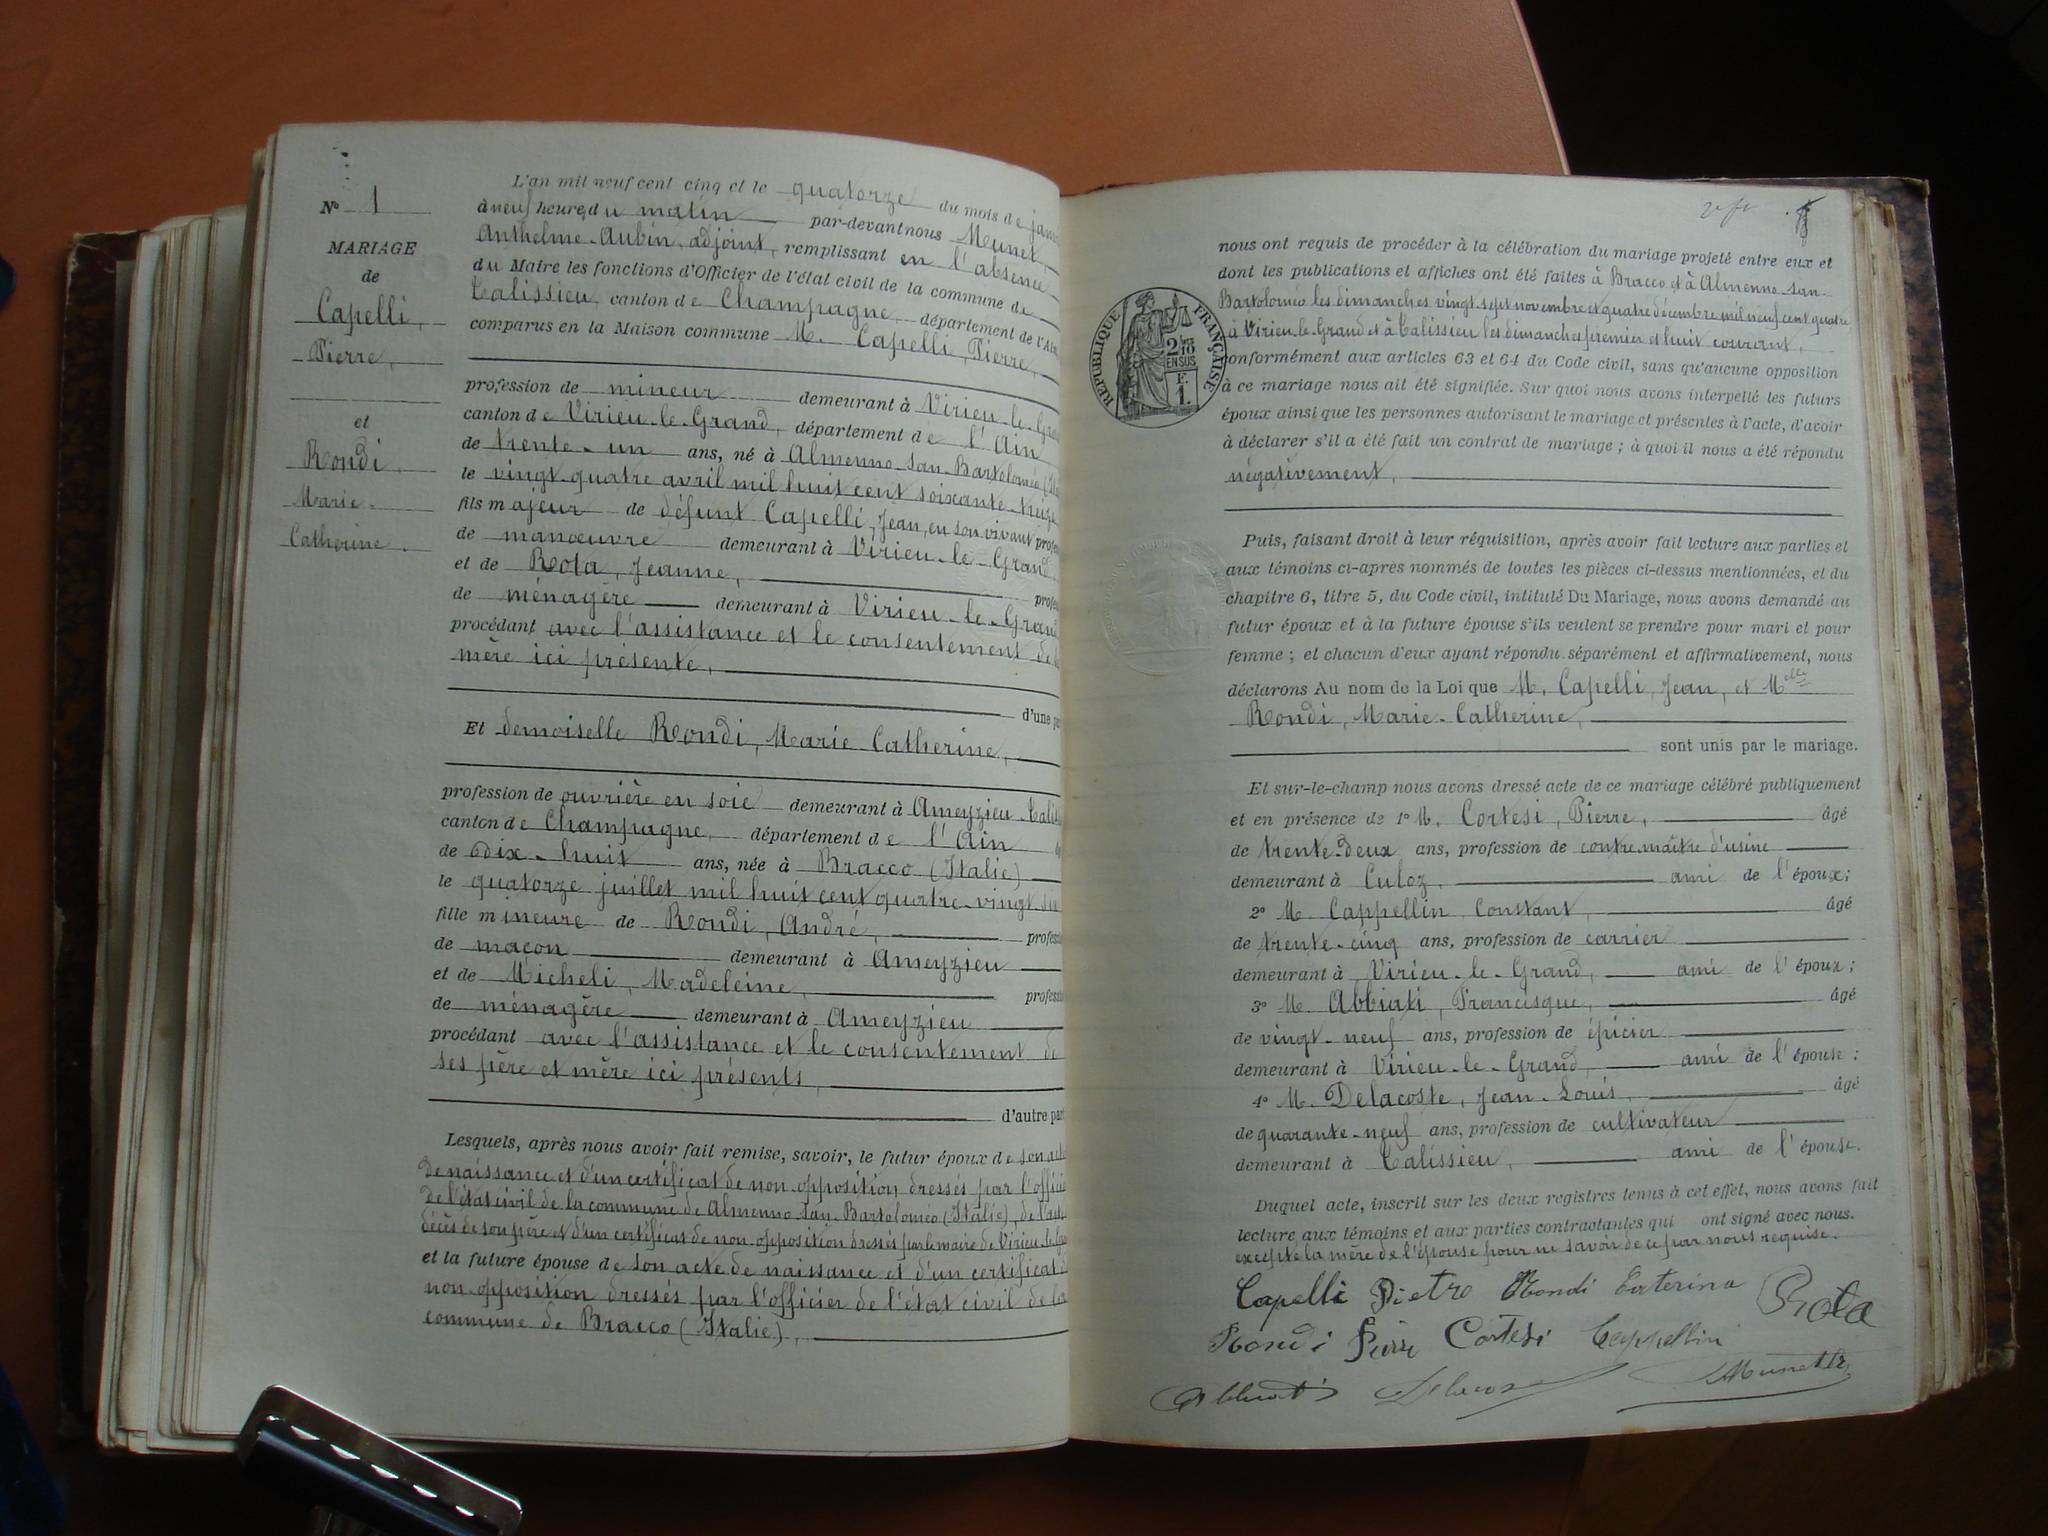 N° 1
MARIAGE
de
Capelli,
Pierre,
et
Rondi
Marie
Catherine
L'an mil neuf cent cinq et le quatorze du mois de janv
à neuf heures du matin par-devant nous Munet,
Anthelme Aubin, adjoint, remplissant en l'absence
du Maire les fonctions d'Officier de l'état civil de la commune de
Talissieu, canton de Champagne, département de l'Ain,
comparus en la Maison commune M. Capelli, Pierre,
profession de mineur demeurant à Virieu-le-Gra
canton de Virieu-le-Grand, département de l'Ain
de trente-un ans, né à Almenno-San-Bartoloméo (Ita
le vingt quatre avril mil huit cent soixante-treize
fils majeur de défunt Capelli, Jean, en son vivant profes
de manœuvre demeurant à Virieu-le-Grand
et de Rota, Jeanne, profes
de ménagère demeurant à Virieu-le-Grand
procédant avec l'assistance et le consentement de
mère ici présente,
d'une pa
Et demoiselle Rondi, Marie Catherine,
profession de ouvrière en soie demeurant à Ameyzieu-Talis
canton de Champagne, département de l'Ain
de dix-huit ans, née à Bracco (Italie)
le quatorze juillet mil huit cent quatre-vingt six
fille mineure de Rondi, André, profess
de maçon demeurant à Ameyzieu
et de Micheli, Madeleine, profess
de ménagère demeurant à Ameyzieu
procédant avec l'assistance et le consentement de
ses père et mère ici présents,
d'autre par
Lesquels, après nous avoir fait remise, savoir, le futur époux de son acte
de naissance et d'un certificat de non opposition dressés par l'offici
de l'état civil de la commune de Almenno-San-Bartoloméo (Italie), de l'acte
décès de son père et d'un certificat de non opposition dressés par le maire de Virieu-le-Gra
et la future épouse de son acte de naissance et d'un certificat d
non opposition dressés par l'officier de l'état civil de la
commune de Bracco (Italie),
nous ont requis de procéder à la célébration du mariage projeté entre eux et
dont les publications et affiches ont été faites à Bracco et à Almenno-San-
Bartoloméo les dimanches vingt sept novembre et quatre décembre mil neuf cent quatre,
à Virieu-le-Grand et à Talissieu les dimanches premier et huit courant,
conformément aux articles 63 et 64 du Code civil, sans qu'aucune opposition
à ce mariage nous ait été signifiée. Sur quoi nous avons interpellé les futurs
époux ainsi que les personnes autorisant le mariage et présentes à l'acte, d'avoir
à déclarer s'il a été fait un contrat de mariage ; à quoi il nous a été répondu
négativement,
RÉPUBLIQUE FRANÇAISE
2/10
EN SUS
F.
1.
Puis, faisant droit à leur réquisition, après avoir fait lecture aux parties et
aux témoins ci-après nommés de toutes les pièces ci-dessus mentionnées, et du
chapitre 6, titre 5, du Code civil, intitulé Du Mariage, nous avons demandé au
futur époux et à la future épouse s'ils veulent se prendre pour mari et pour
femme ; et chacun d'eux ayant répondu séparément et affirmativement, nous
déclarons Au nom de la Loi que M. Capelli, Jean, et Melle
Rondi, Marie-Catherine,
sont unis par le mariage.
Et sur-le-champ nous avons dressé acte de ce mariage célébré publiquement
et en présence de 1° M. Cortesi, Pierre, âgé
de trente-deux ans, profession de contre-maître d'usine
demeurant à Culoz, ami de l'époux ;
2° M. Cappellin, Constant, âgé
de trente-cinq ans, profession de carrier
demeurant à Virieu-le-Grand, ami de l'époux ;
3° M. Abbiati, Francisque, âgé
de vingt-neuf ans, profession de épicier
demeurant à Virieu-le-Grand, ami de l'épouse ;
4° M. Delacoste, Jean-Louis, âgé
de quarante-neuf ans, profession de cultivateur
demeurant à Talissieu, ami de l'épouse.
Duquel acte, inscrit sur les deux registres tenus à cet effet, nous avons fait
lecture aux témoins et aux parties contractantes qui ont signé avec nous.
excepté la mère de l'épouse pour ne savoir de ce par nous requise.
Capelli Pietro Rondi Caterina Rota
Rondi Cortesi Cappellini
Abbiati Delacoste Munet